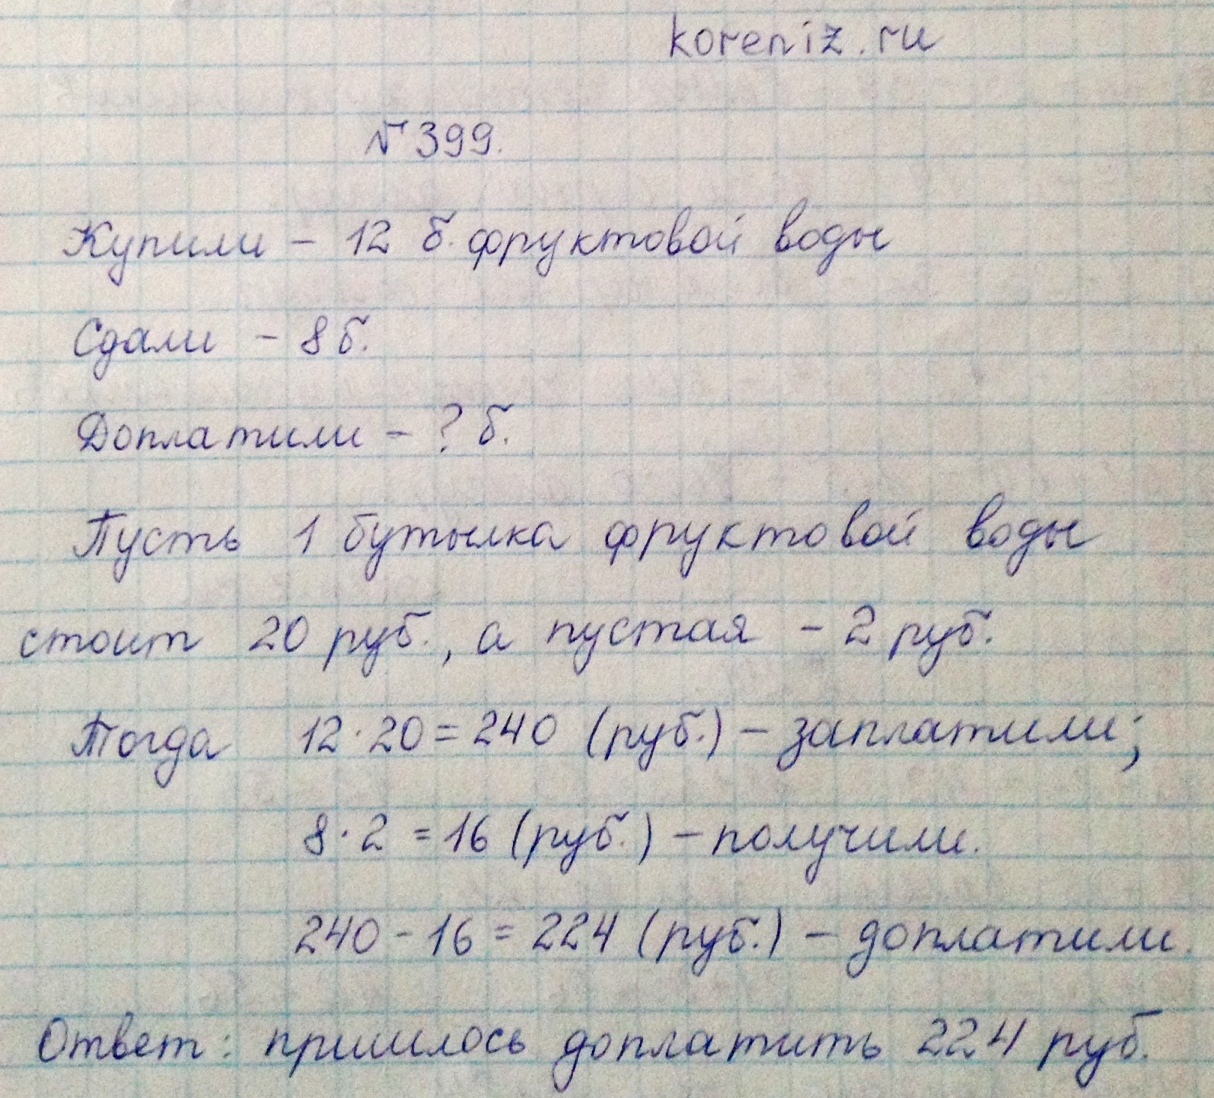 koreniz.ru
№399.
Купили - 12 б. фруктовой воды
Сдали - 8 б.
Доплатили - ? б.
Пусть 1 бутылка фруктовой воды
стоит 20 руб., а пустая - 2 руб.
Тогда 12·20=240 (руб.) - заплатили;
8·2=16 (руб.) - получили.
240-16=224 (руб.) - доплатили.
Ответ: пришлось доплатить 224 руб.